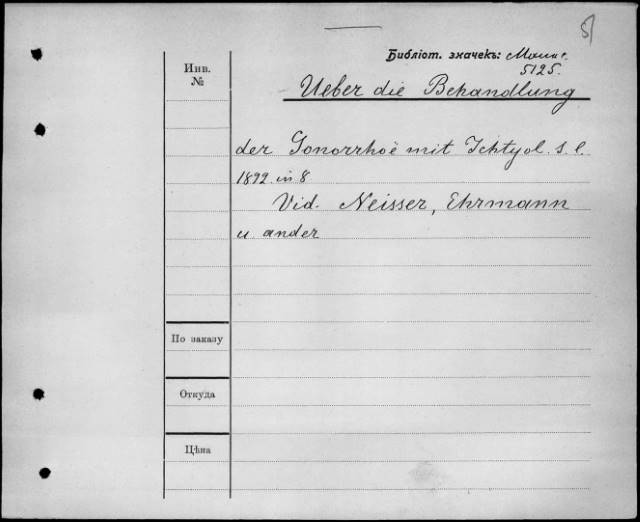 5
Библіот. значекъ:
5125.
Инв.
№
Ueber die Behandlung
der Gonorrhoë mit Ichtyol. s. l.
1892. in 8
Vid. Neisser, Ehrmann
u. ander
По заказу
Откуда
Цѣна